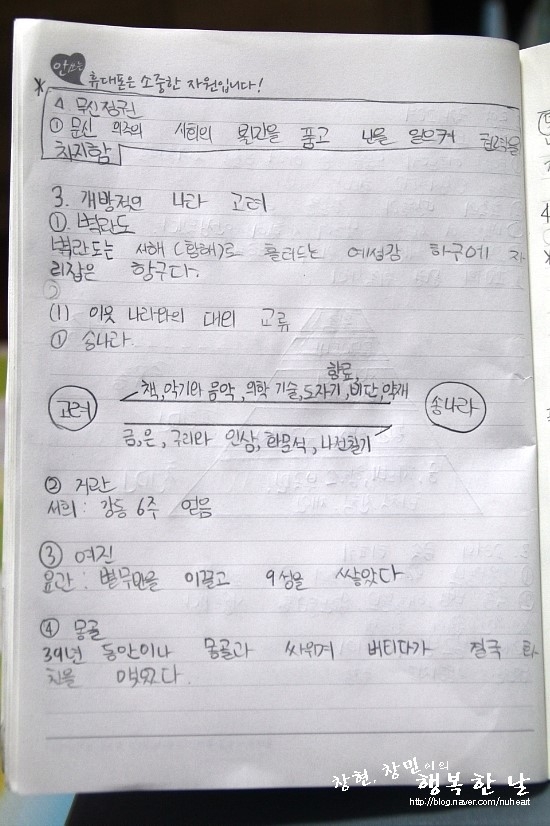 안쓰는 휴대폰은 소중한 자원입니다!
* 4 무신정권
① 문신 위주의 사회의 불만을 품고 난을 일으켜 권력을
차지함
3. 개방적인 나라 고려
① 벽란도
벽란도는 서해(황해)로 흘러드는 예성강 하구에 자
리잡은 항구다.
(1) 이웃 나라와의 대외 교류
① 송나라
향료,
책, 악기와 음악, 의학 기술, 도자기, 비단, 약재
고려
송나라
금, 은, 구리와 인삼, 화문석, 나전칠기
② 거란
서희 : 강동 6주 얻음
③ 여진
윤관 : 별무반을 이끌고 9성을 쌓았다
④ 몽골
39년 동안이나 몽골과 싸우며 버티다가 결국 화
친을 맺었다.
창현, 창민이의
행복한 날
http://blog.naver.com/nuheart